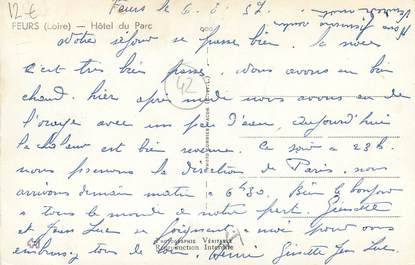 12 €
Feurs le 6. 8. 57.
FEURS (Loire) — Hôtel du Parc
Notre séjour se passe bien la noce
c'est très bien passée. nous avons eu bien
chaud. hier après midi nous avons eu de
l'orage avec un peu d'eau, aujourd'hui
la chaleur est bien revenue. Ce soir à 23h
nous prenons la direction de Paris. nous
arrivons demain matin à 6h30. Bien le bonjour
à tous le monde de notre part. Ginette
et Jean Luc se joignent à moi pour vous
embrasser tous de
Ginette Jean Luc
42
PHOTOGRAPHIE VÉRITABLE
Reproduction Interdite